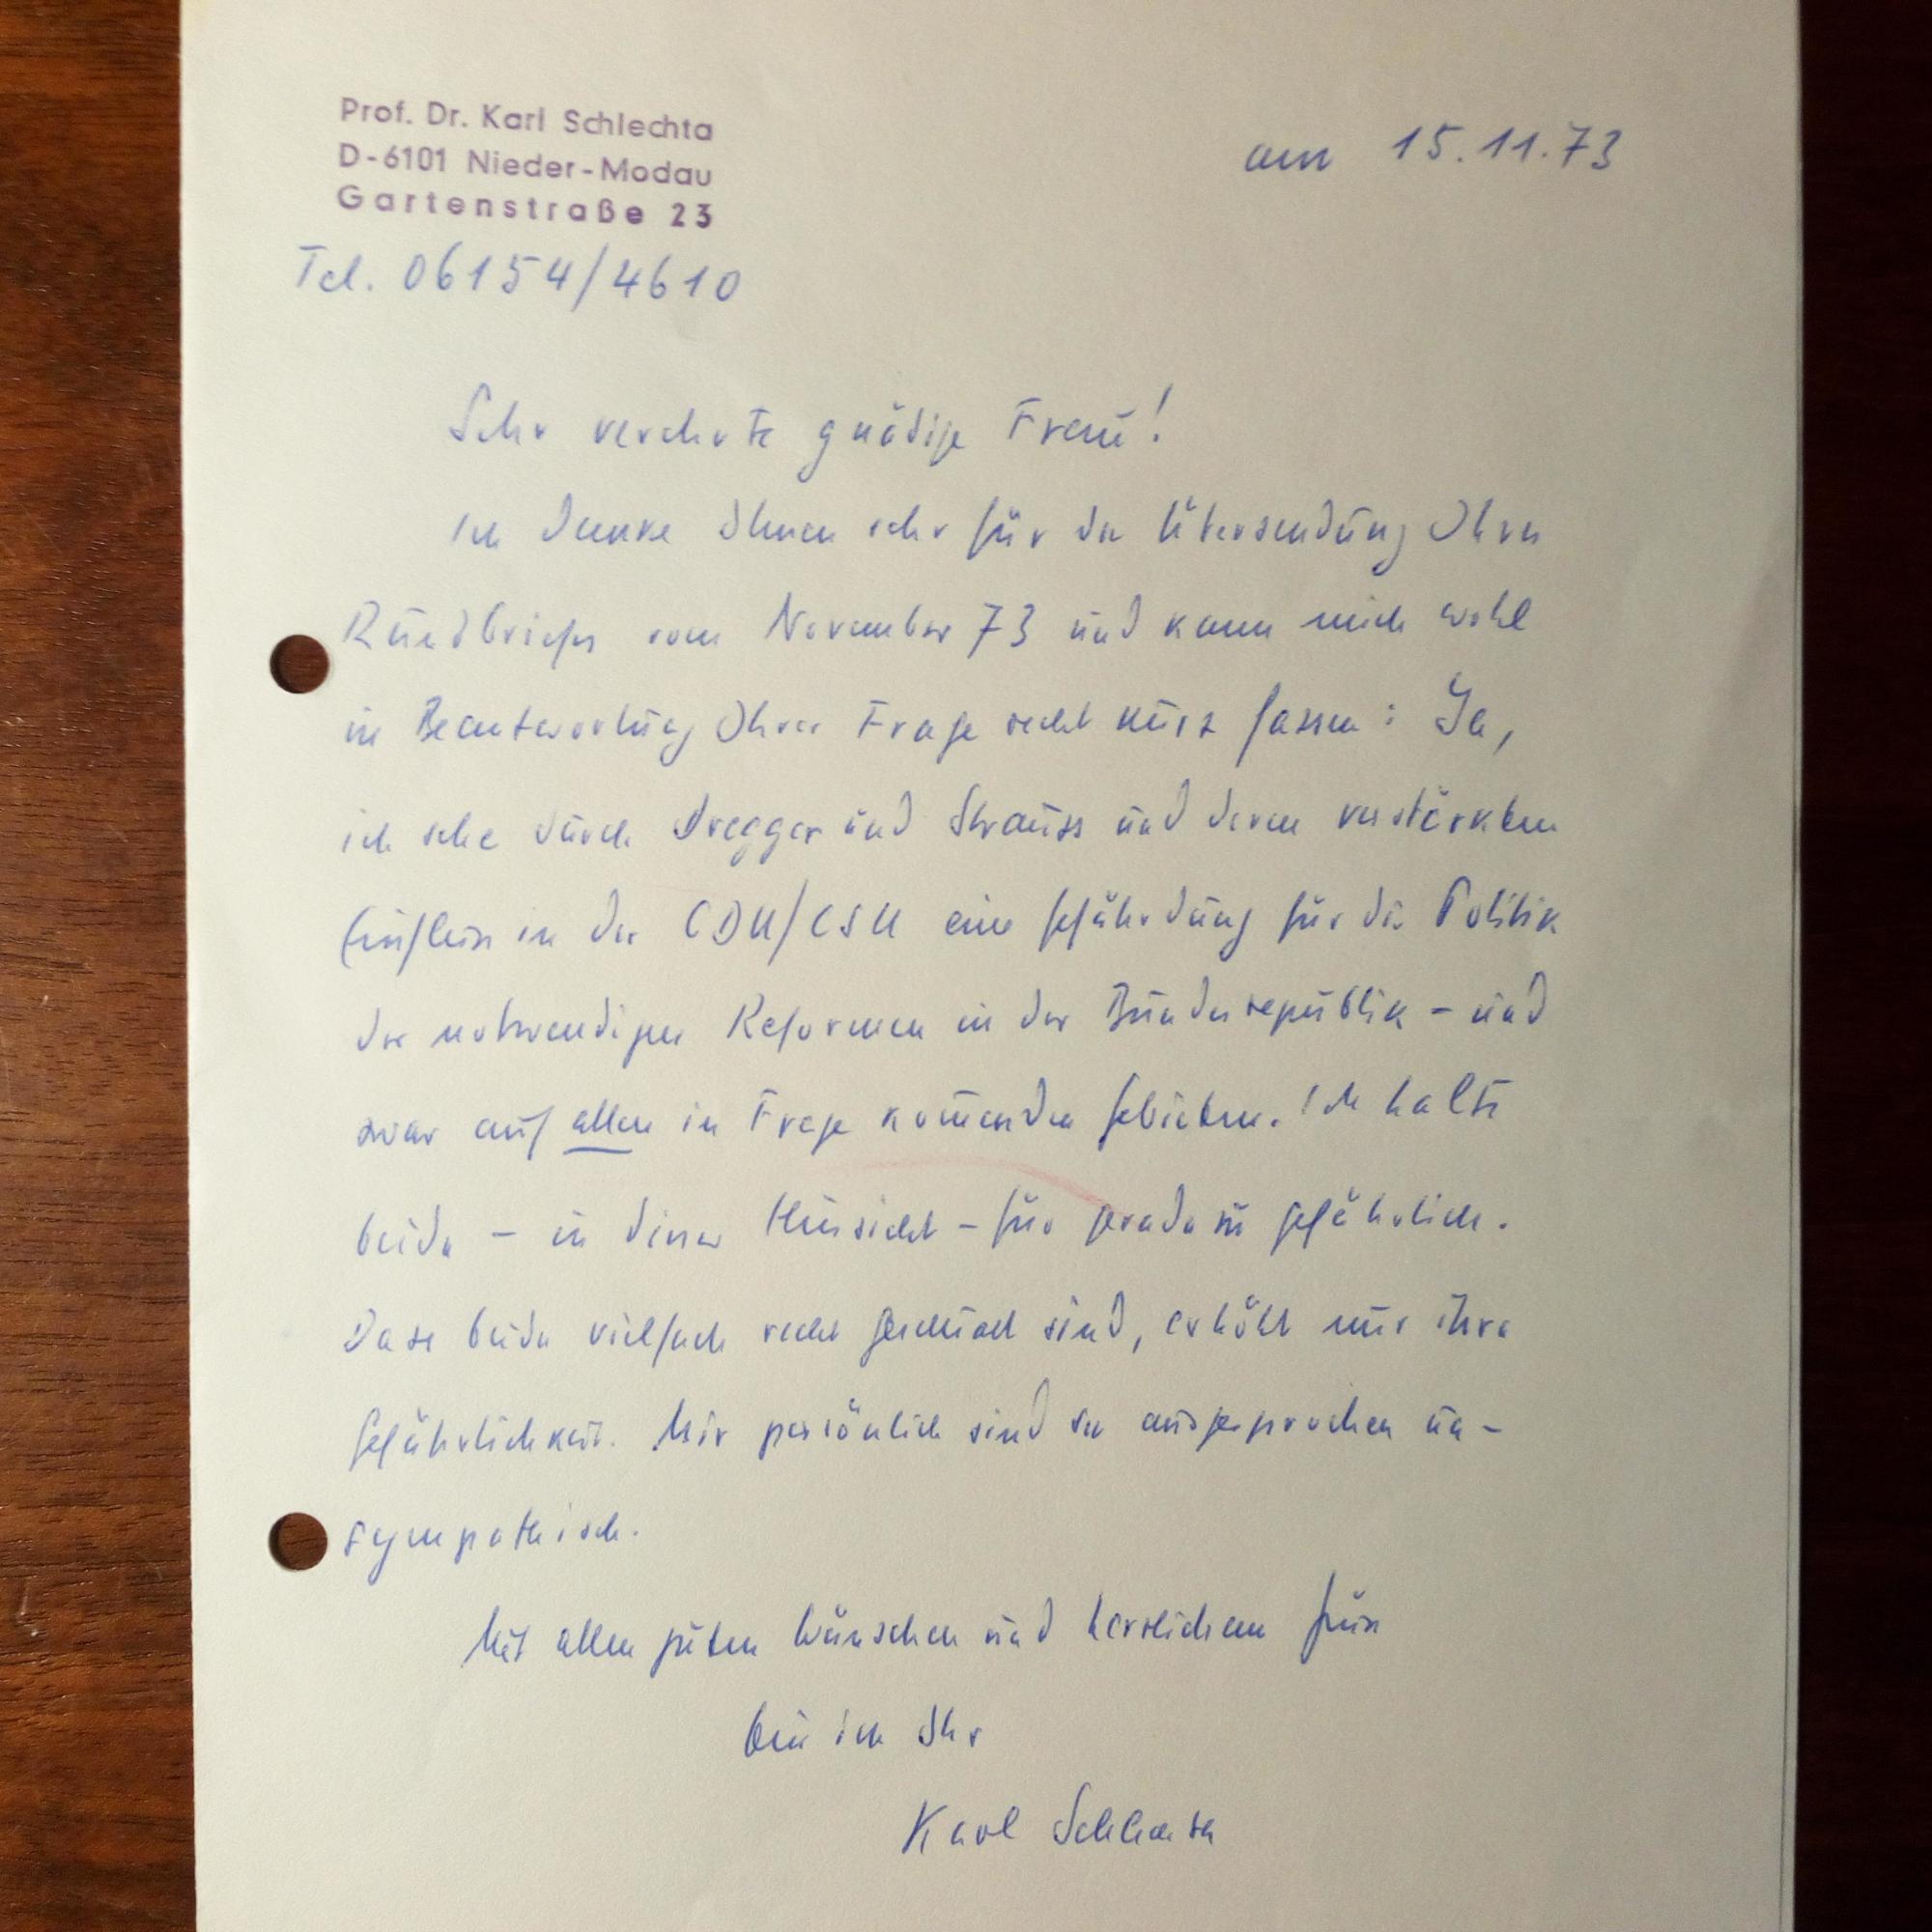 Prof. Dr. Karl Schlechta
D-6101 Nieder-Modau
Gartenstraße 23
Tel. 06154/4610
am 15.11.73
Sehr verehrte gnädige Frau!
Ich danke Ihnen sehr für die Übersendung Ihres
Rundbriefes vom November 73 und kann mich wohl
in Beantwortung Ihrer Frage recht kurz fassen: Ja,
ich sehe durch Dregger und Strauss und deren verstärkten
Einfluss in der CDU/CSU eine Gefährdung für die Politik
der notwendigen Reformen in der Bundesrepublik – und
zwar auf allen in Frage kom̄enden Gebieten. Ich halte
beide – in dieser Hinsicht – für geradezu gefährlich.
Dass beide vielfach recht geschickt sind, erhöht nur ihre
Gefährlichkeit. Mir persönlich sind sie ausgesprochen un-
sympathisch.
Mit allen guten Wünschen und herzlichem Gruss
bin ich Ihr
Karl Schlechta